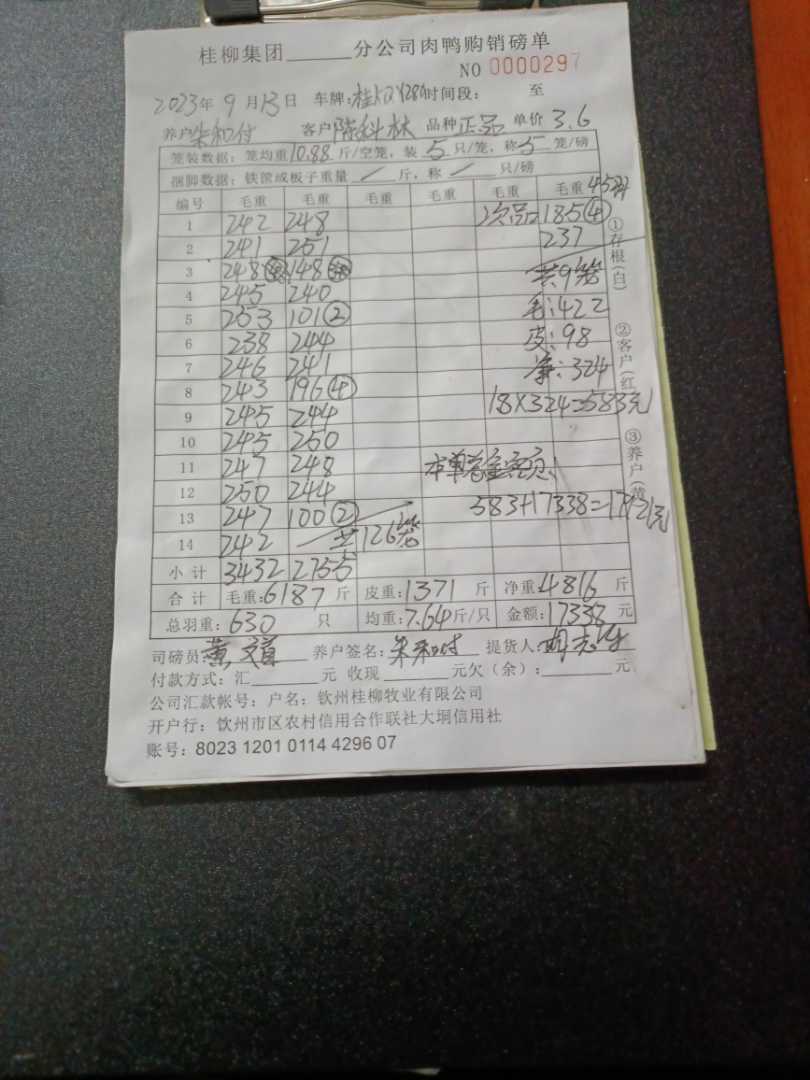 桂柳集团______分公司肉鸭购销磅单
NO 0000297
2023年 9 月 13 日 车牌: 时间段: 至
养户 朱和付 客户 陈科林 品种 正品 单价 3.6
笼装数据: 笼均重 10.88 斤/空笼, 装 5 只/笼, 称 5 笼/磅
捆脚数据: 铁筐或板子重量 / 斤, 称 / 只/磅
编号 毛重 毛重 毛重 毛重 毛重 毛重 45只
1 242 248 次品: 185④
2 241 251 237
3 248 148 共9笼
4 245 240 毛:422
5 253 101② 皮:98
6 238 244 净:324
7 246 241
8 243 196④ 18×324=583元
9 245 244
10 245 250
11 247 248 本单总金额:
12 250 244
13 247 100② 583+17338=17921元
14 242 共126笼
小计 3432 2755
合计 毛重:6187 斤 皮重:1371 斤 净重:4816 斤
总羽重: 630 只 均重:7.64斤/只 金额:17338 元
司磅员: 养户签名: 朱和付 提货人:
付款方式: 汇______元 收现______元欠(余):______元
公司汇款帐号: 户名: 钦州桂柳牧业有限公司
开户行: 钦州市区农村信用合作联社大垌信用社
账号: 8023 1201 0114 4296 07
①存根(白) ②客户(红 ③养户(黄